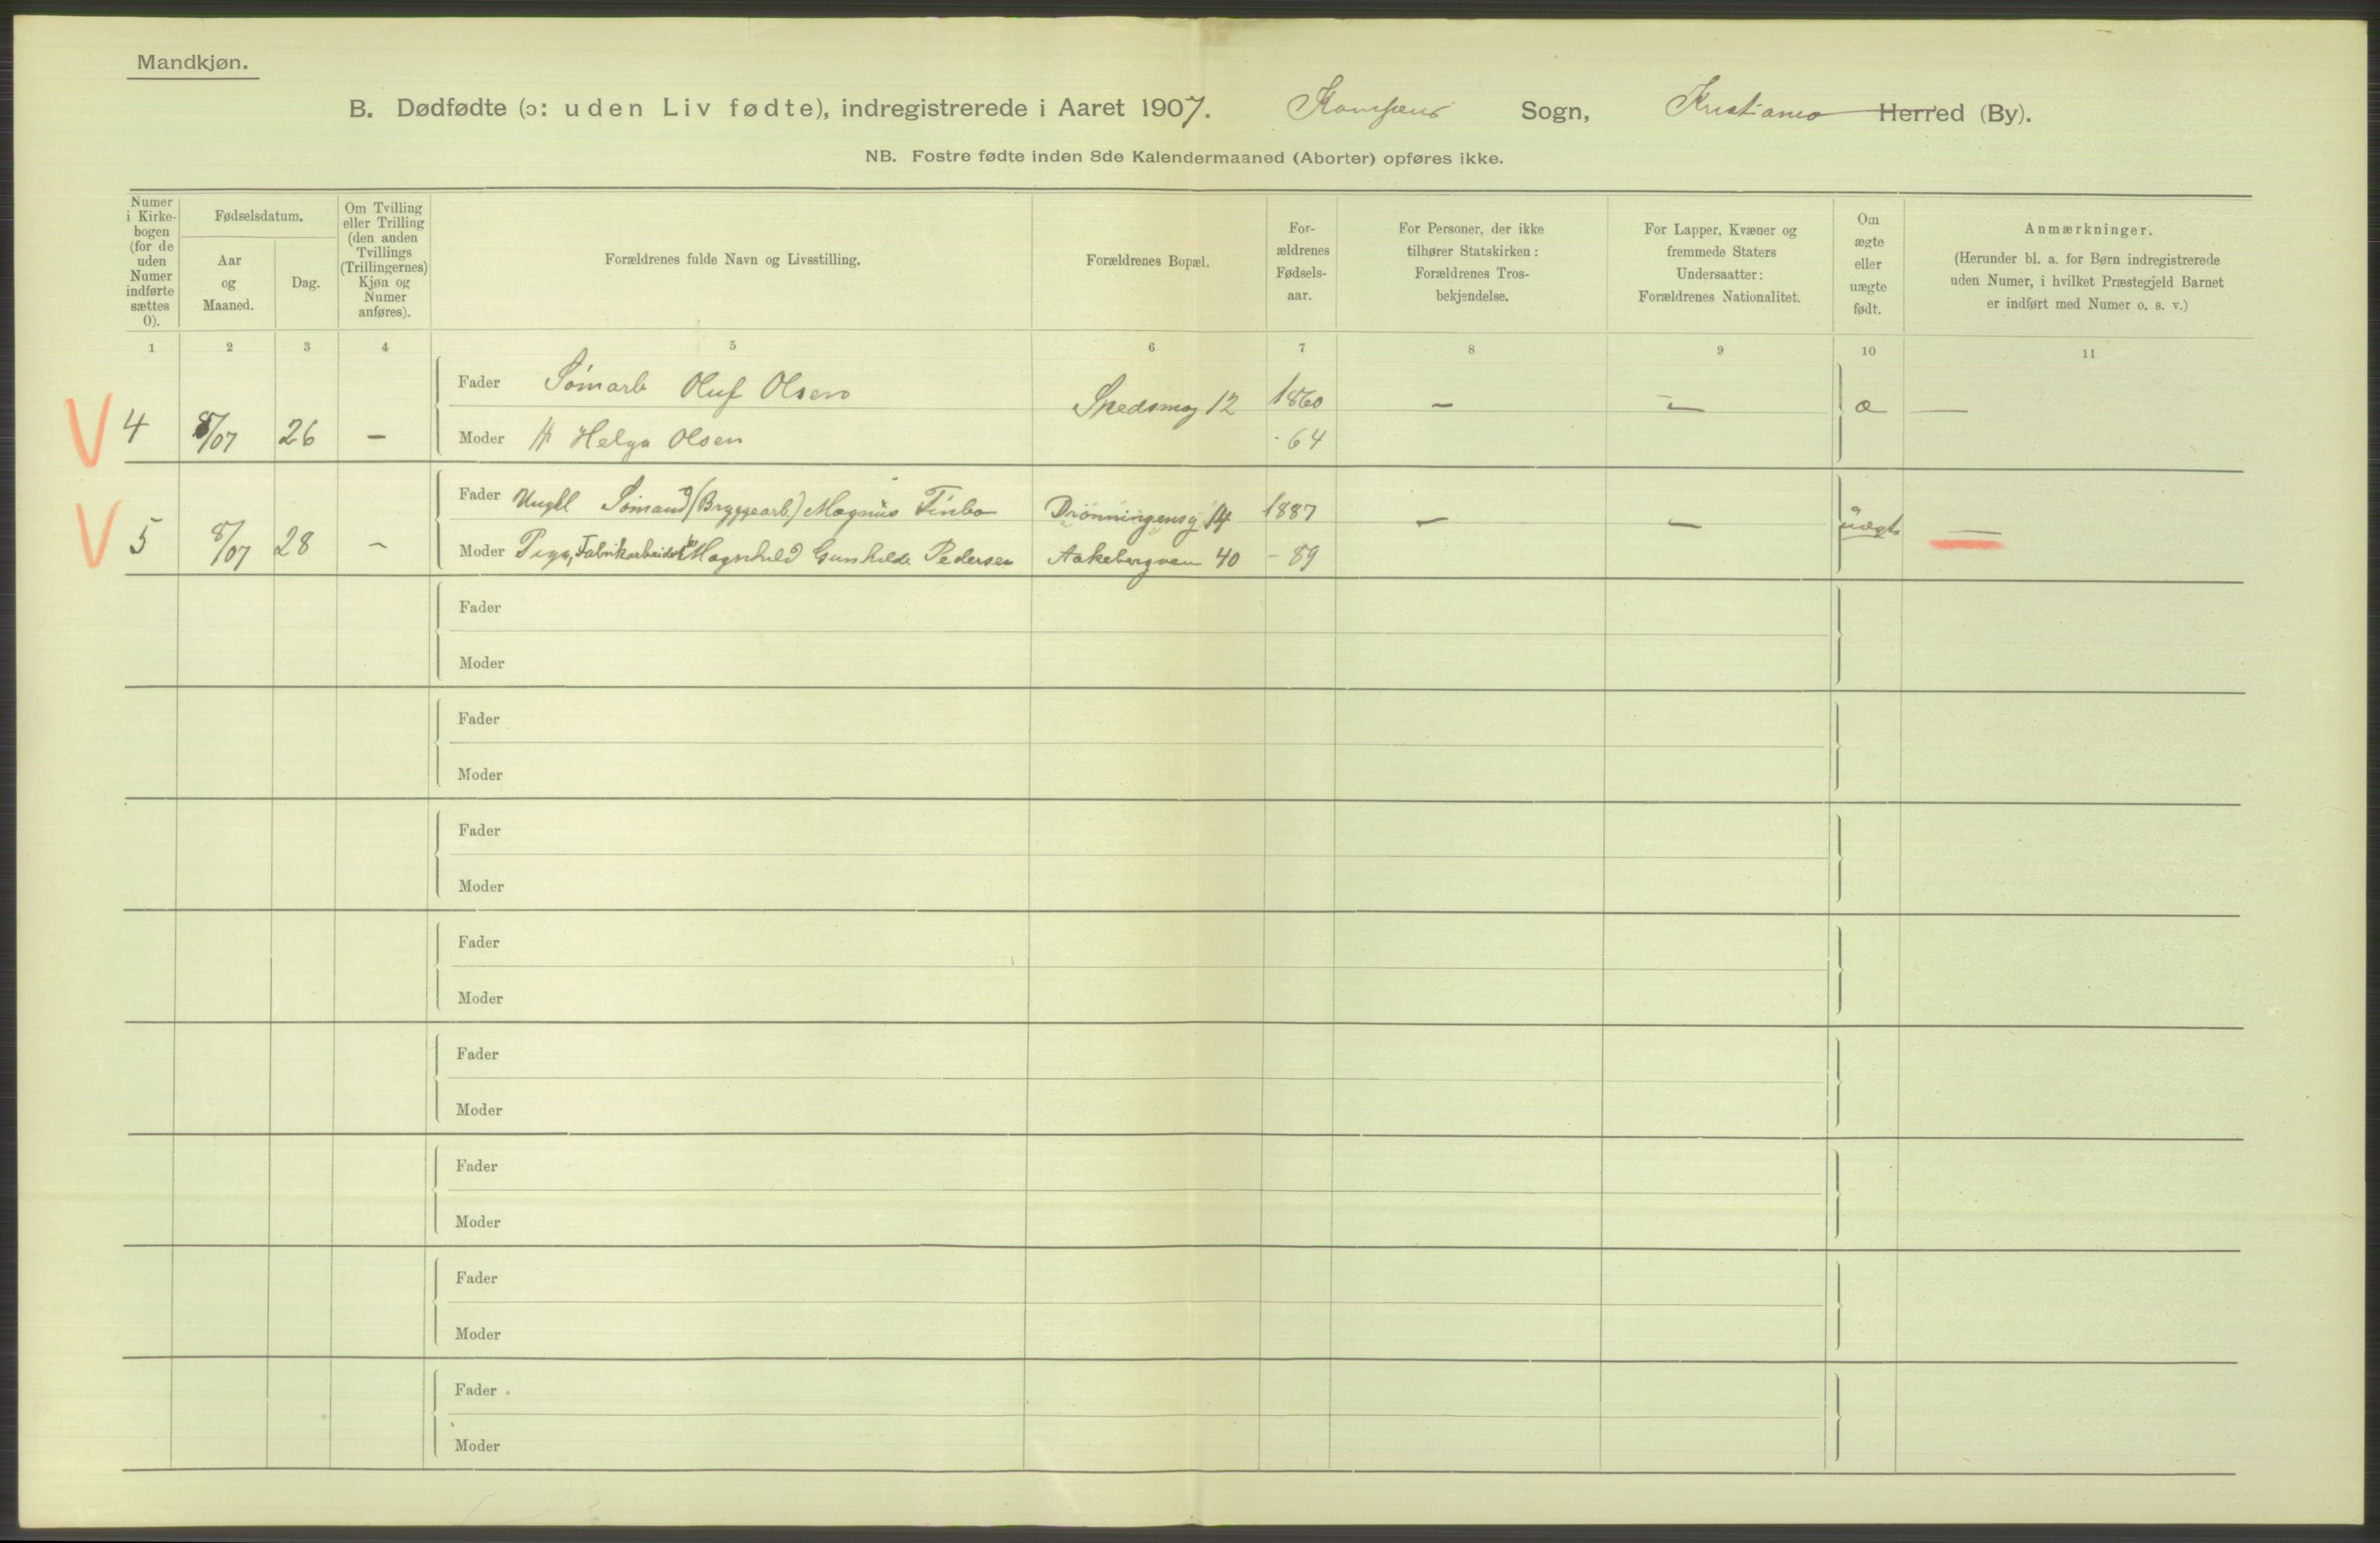 Mandkjøn.
B. Dødfødte (ɔ: uden Liv fødte), indregistrerede i Aaret 1907. Kampens Sogn, Kristiania Herred (By).
NB. Fostre fødte inden 8de Kalendermaaned (Aborter) opføres ikke.
Numer i Kirkebogen (for de uden Numer indførte sættes 0).
Fødselsdatum.
Aar og Maaned.
Dag.
Om Tvilling eller Trilling (den anden Tvillings (Trillingernes) Kjøn og Numer anføres).
Forældrenes fulde Navn og Livsstilling.
Forældrenes Bopæl.
Forældrenes Fødselsaar.
For Personer, der ikke tilhører Statskirken: Forældrenes Trosbekjendelse.
For Lapper, Kvæner og fremmede Staters Undersaatter: Forældrenes Nationalitet.
Om ægte eller uægte født.
Anmærkninger.
(Herunder bl. a. for Børn indregistrerede uden Numer, i hvilket Præstegjeld Barnet er indført med Numer o. s. v.)
1 2 3 4 5 6 7 8 9 10 11
V 4 8/07 26 – Fader Sømarb Oluf Olsen Skedsmog 12 1860 – – æ —
Moder Helga Olsen - 64
V 5 8/07 28 – Fader Ungkl Sømand (Bryggearb.) Magnus Finbo Dronningensg 14 1887 – – uægte —
Moder Pige, Fabrikarbeiderske Magnhild Gunhilde Pedersen Aakebergvein 40 - 89
Fader
Moder
Fader
Moder
Fader
Moder
Fader
Moder
Fader
Moder
Fader
Moder
Fader
Moder
Fader
Moder